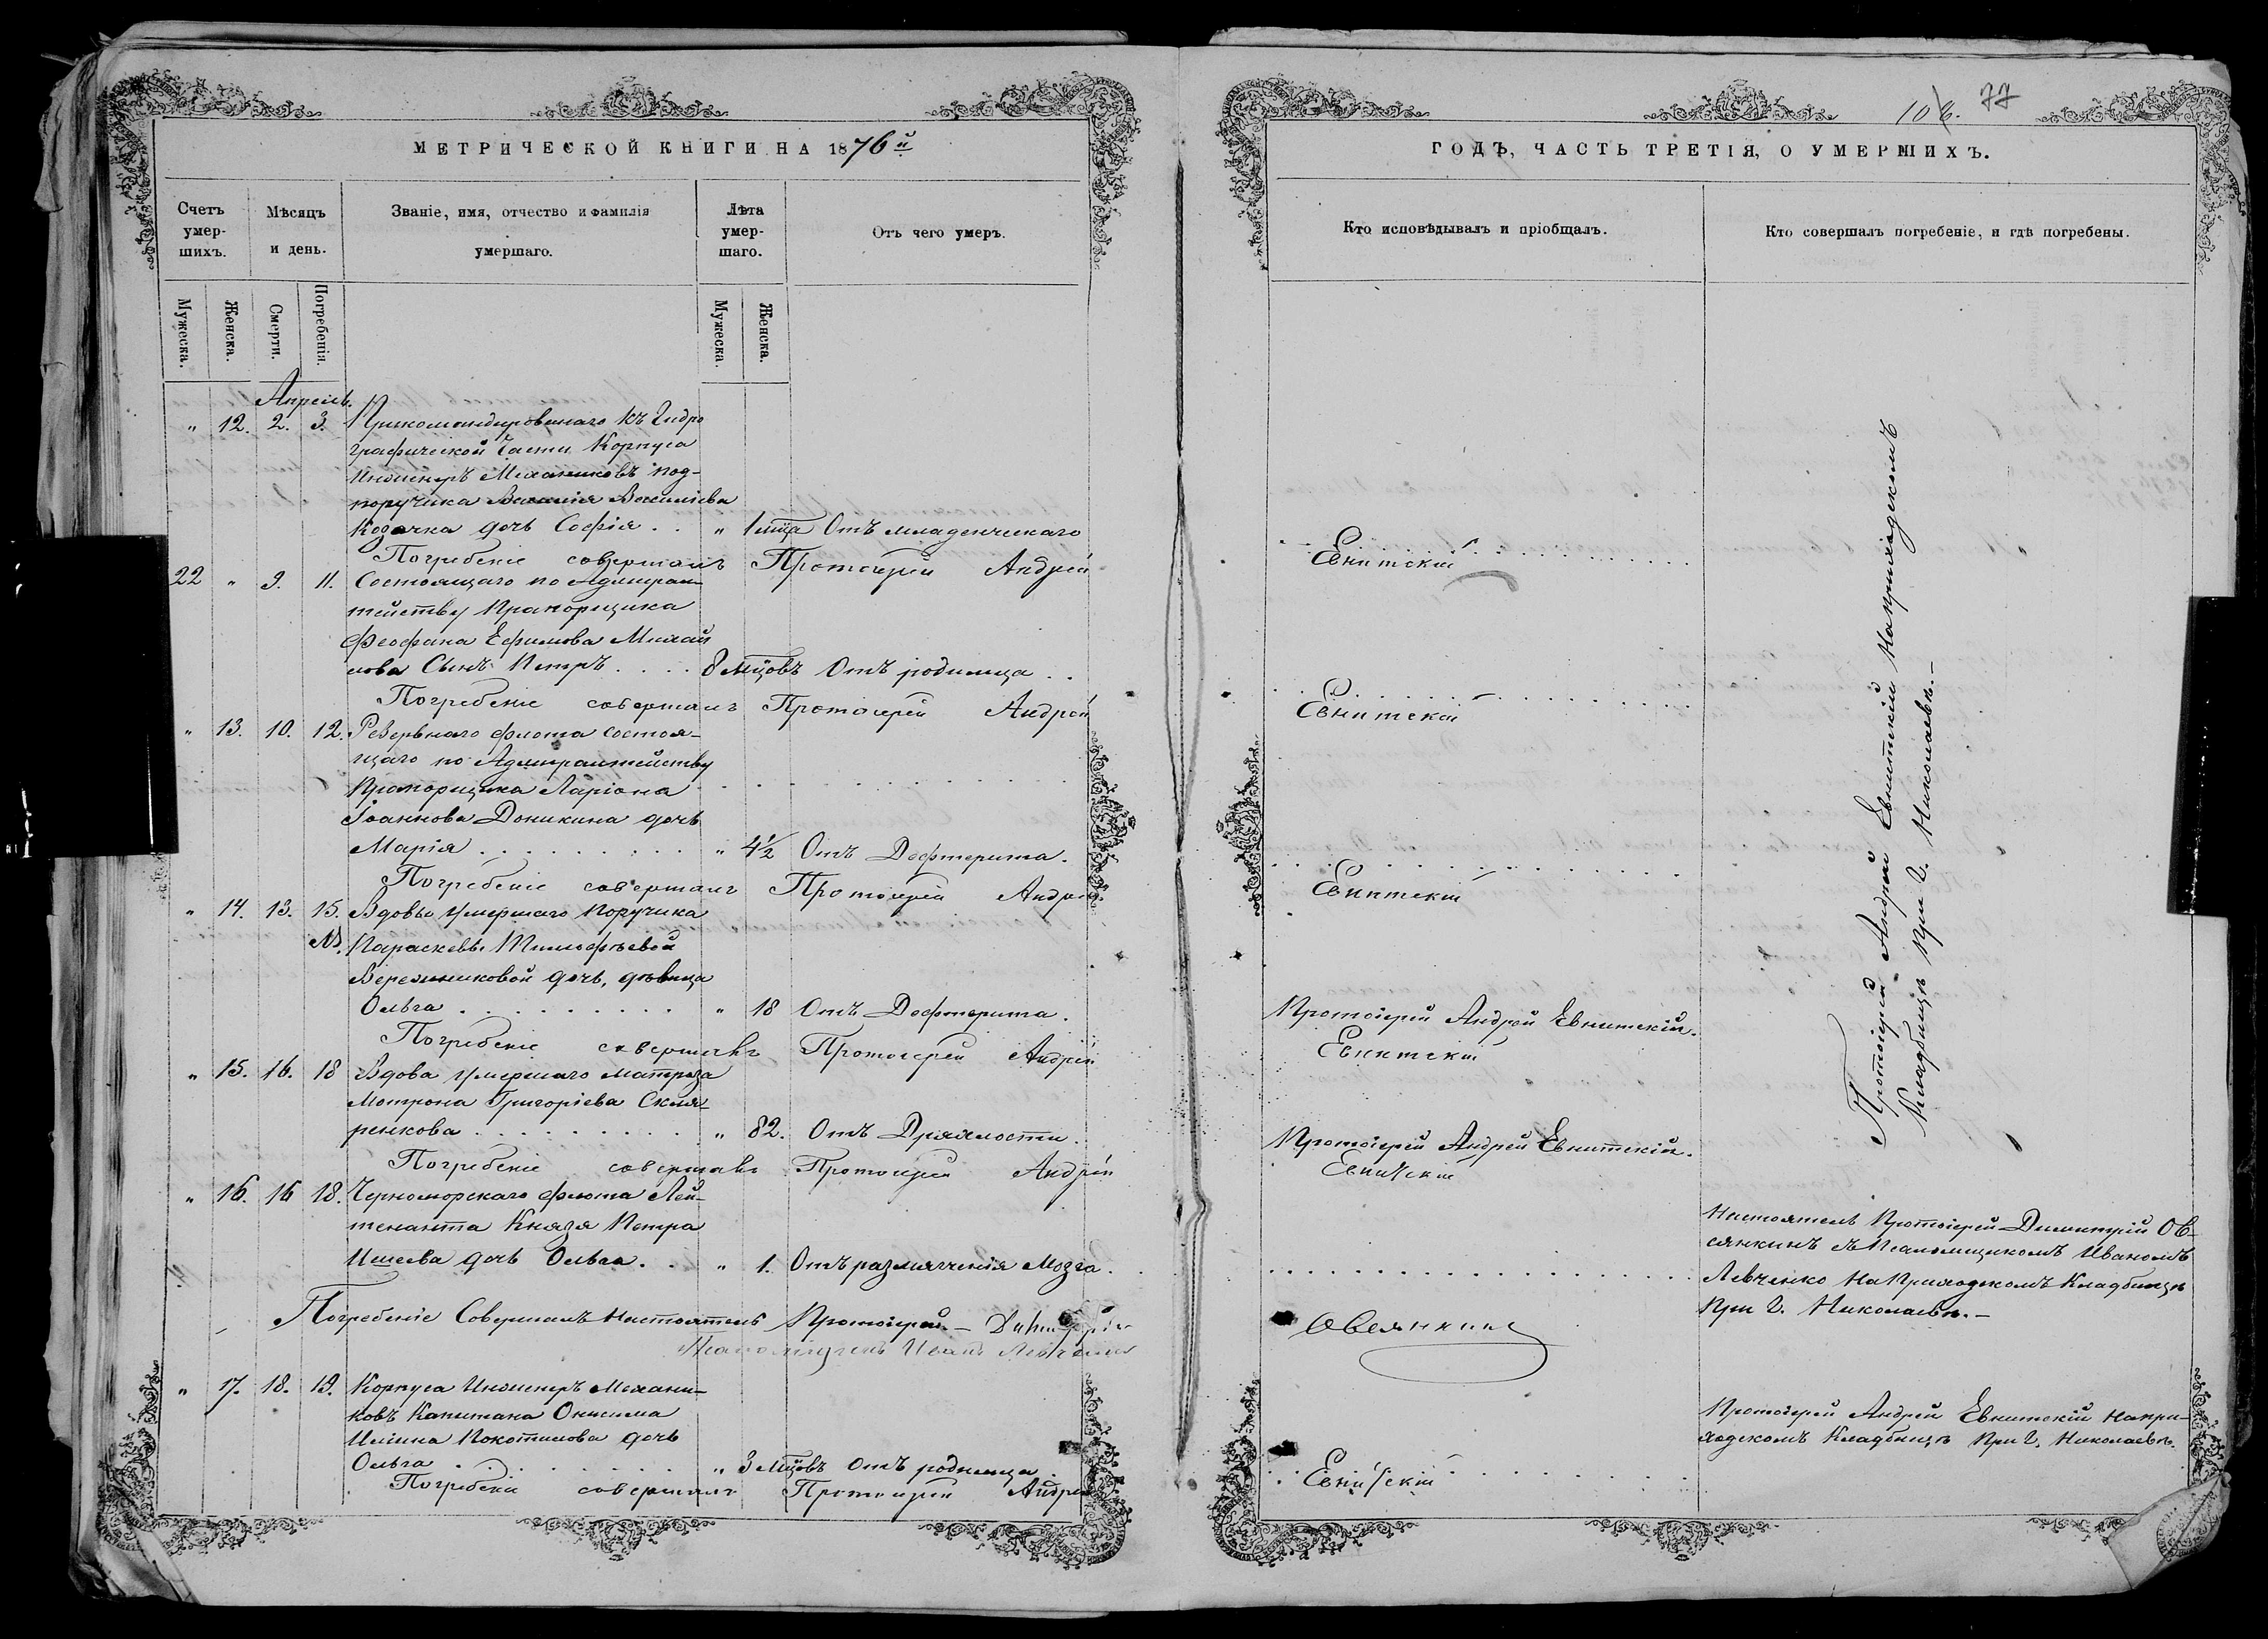 МЕТРИЧЕСКОЙ КНИГИ НА 1876й
Счетъ умер-шихъ.
Мѣсяцъ и день.
Званіе, имя, отчество и фамилія умершаго.
Лѣта умер-шаго.
Отъ чего умеръ.
Мужеска.
Женска.
Смерти.
Погребенія.
Мужеска.
Женска.
Апрель.
" 12. 2. 3. Прикомандированнаго къ Гидро
графической Части Корпуса
Инженеръ Механиковъ под-
поручика Василія Васильева
Козачка дочь Софія . . " 1 мца Отъ младенческаго
Погребеніе совершалъ Протоіерей Андрей
22 " 9. 11. Состоящаго по Адмирал-
тейству Прапорщика
Феофана Ефимова Михай
лова Сынъ Петръ . . . . 8 мцовъ Отъ родимца . .
Погребеніе совершалъ Протоіерей Андрей
" 13. 10. 12. Резервнаго флота состоя-
щаго по Адмиралтейству
Прапорщика Ларіона
Іоаннова Доникина дочь
Марія . . . . . . . . . " 4½ Отъ Дефтерита.
Погребеніе совершалъ Протоіерей Андрей
" 14. 13. 15. Вдовы умершаго Поручика
Параскевы Тимофѣевой
дочь, дѣвица
Ольга . . . . . . . . . " 18 Отъ Дефтерита.
Погребеніе совершалъ Протоіерей Андрей
" 15. 16. 18 Вдова умершаго матроза
Мотрона Григоріева Скля-
ренкова . . . . . . . . . " 82. Отъ Дряхлости.
Погребеніе совершалъ Протоіерей Андрей
" 16. 16 18. Черноморскаго флота Лей-
тенанта Князя Петра
Ишеева дочь Ольга. . " 1. Отъ размягченія Мозга . .
Погребеніе Совершалъ Настоятель Протоіерей – Димитрій
Псаломщикъ Иванъ Левченко
" 17. 18. 19. Корпуса Инженеръ Механи-
ковъ Капитана Онисима
Ильина Покотилова дочь
Ольга . . . . . . . . . " 3 мцовъ Отъ родимца .
Погребеніе совершалъ Протоіерей Андрей
106. 77
ГОДЪ, ЧАСТЬ ТРЕТІЯ, О УМЕРШИХЪ.
Кто исповѣдывалъ и пріобщалъ.
Кто совершалъ погребеніе, и гдѣ погребены.
Евнитскій
Евнитскій
Евнитскій
Протоіерей Андрей Евнитскій.
Евнитскій
Протоіерей Андрей Евнитскій.
Евнитскій
Овсянкинъ
Евнитскій
Протоіерей Андрей Евнитскій на приходскомъ
Кладбищѣ при г. Николаевѣ.–
Настоятель Протоіерей Димитрій Ов-
сянкинъ съ Псаломщикомъ Иваномъ
Левченко на Приходскомъ Кладбищѣ
при г. Николаевѣ.–
Протоіерей Андрей Евнитскій на при-
ходскомъ Кладбищѣ при г. Николаевѣ.